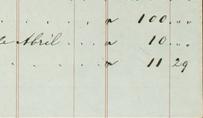 " 100 ..
Abril . . . " 10 ..
" 11 29